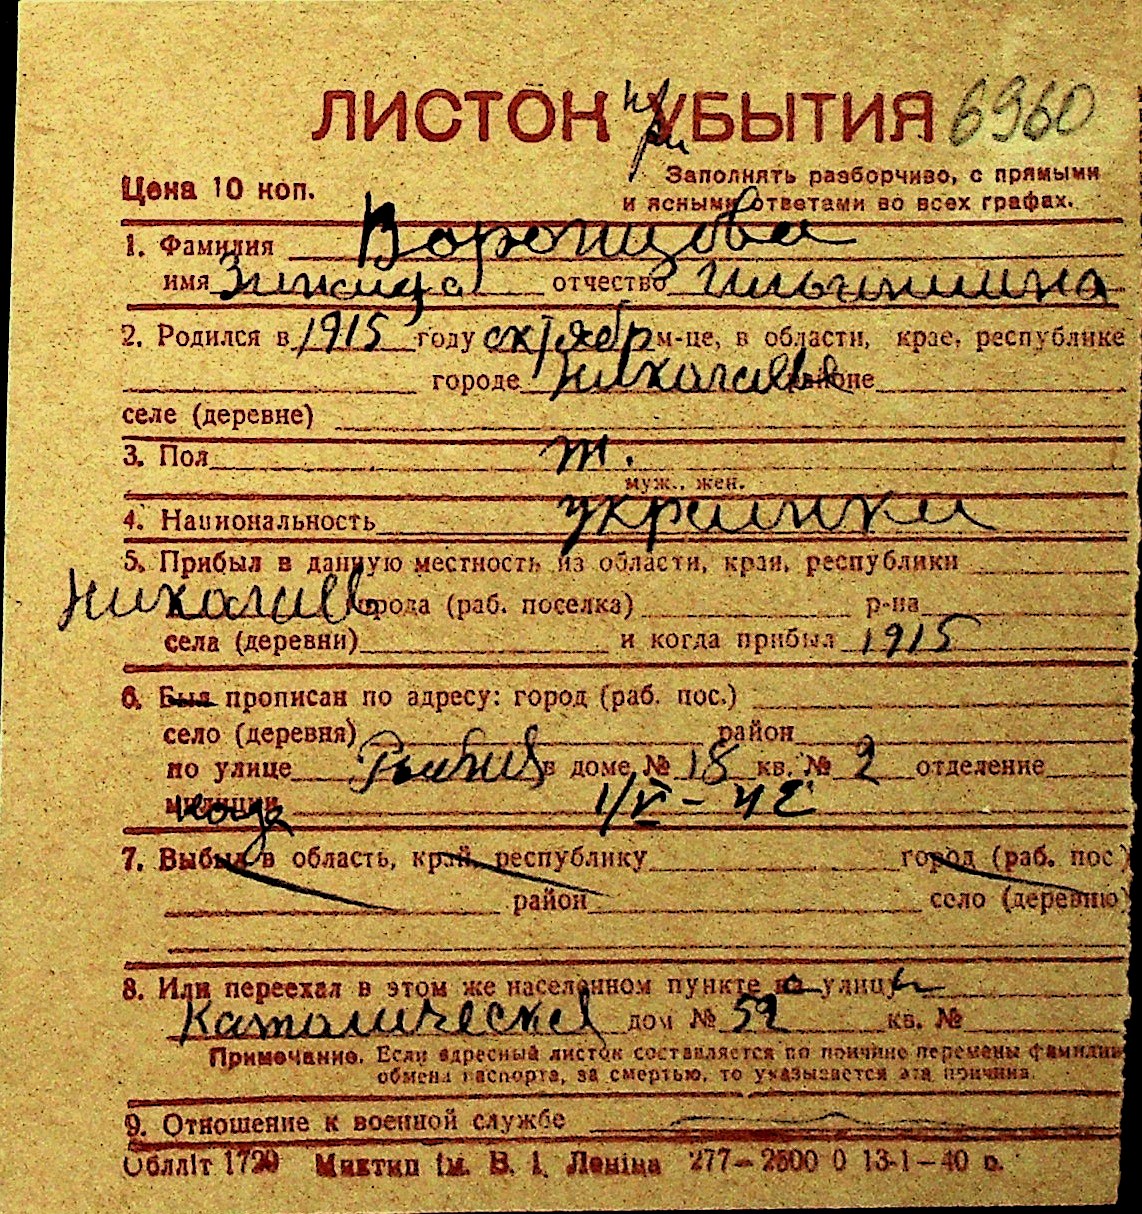 ЛИСТОК при УБЫТИЯ 6960
Цена 10 коп. Заполнять разборчиво, с прямыми
и ясными ответами во всех графах.
1. Фамилия Воронцова
имя Зинаида отчество Ильинишна
2. Родился в 1915 году октябр м-це, в области, крае, республике
городе Николаеве районе
селе (деревне)
3. Пол ж.
муж., жен.
4. Национальность украинка
5. Прибыл в данную местность из области, края, республики
Николаев города (раб. поселка) р-на
села (деревни) и когда прибыл 1915
6. Был прописан по адресу: город (раб. пос.)
село (деревня) район
по улице в доме № 18 кв. № 2 отделение
милиции когда 1/V - 42
7. Выбыл в область, край, республику город (раб. пос.)
район село (деревню)
8. Или переехал в этом же населенном пункте с улицы
Католической дом № 59 кв. №
Примечание. Если адресный листок составляется по причине перемены фамилии
обмена паспорта, за смертью, то указывается эта причина.
9. Отношение к военной службе
Облліт 1720 Миктип ім. В. І. Леніна 277—2500 0 13-1—40 р.